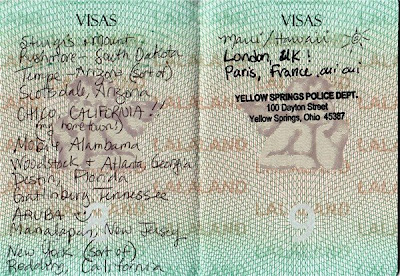 VISAS
Sturgis + Mount
Rushmore - South Dakota
Tempe - Arizona (sort of)
Scotsdale, Arizona
CHICO, CALIFORNIA!!
(my home town!)
Mobile, Alambama
Woodstock + Atlanta, Georgia
Destin, Florida
Gatlinburg, Tennessee
ARUBA
Manalapan, New Jersey
New York (sort of)
Redding, California
VISAS
Maui/Hawaii
London, UK!
Paris, France, oui oui
YELLOW SPRINGS POLICE DEPT.
100 Dayton Street
Yellow Springs, Ohio 45387
LALALAND